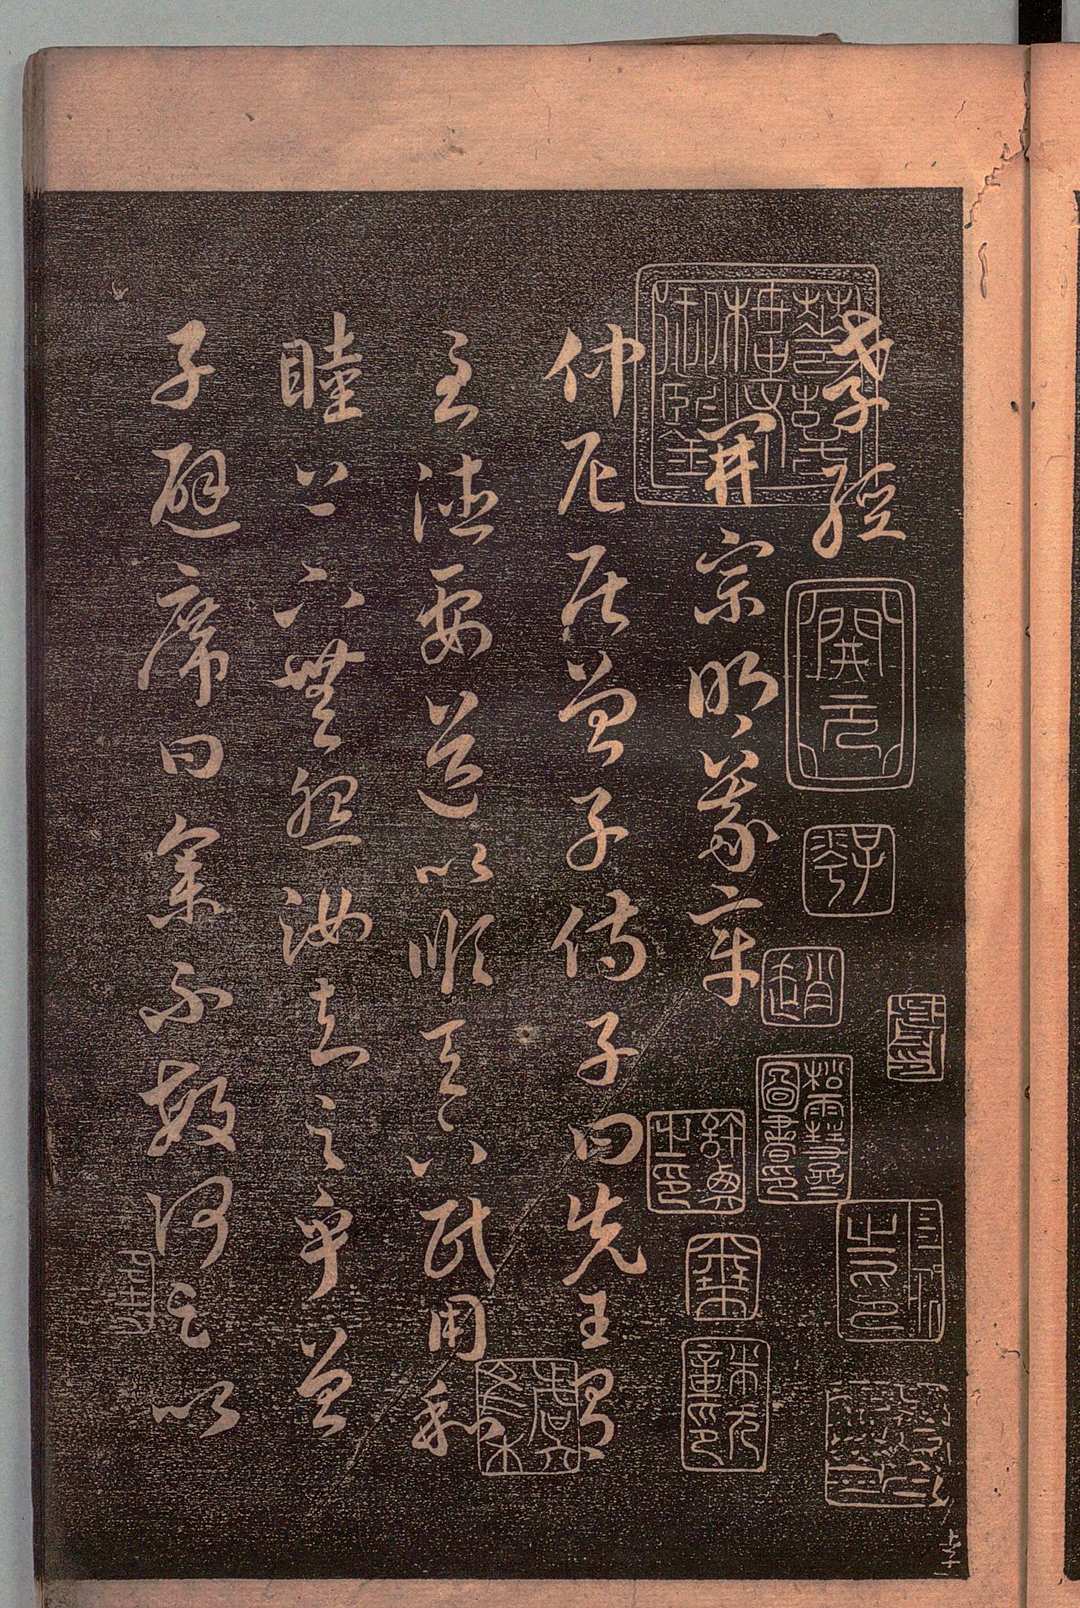 孝經
開宗明義章
仲尼居曾子侍子曰先王有
至德要道以順天下民用和
睦上下無怨汝知之乎曾
子避席曰參不敏何足以
開元
趙